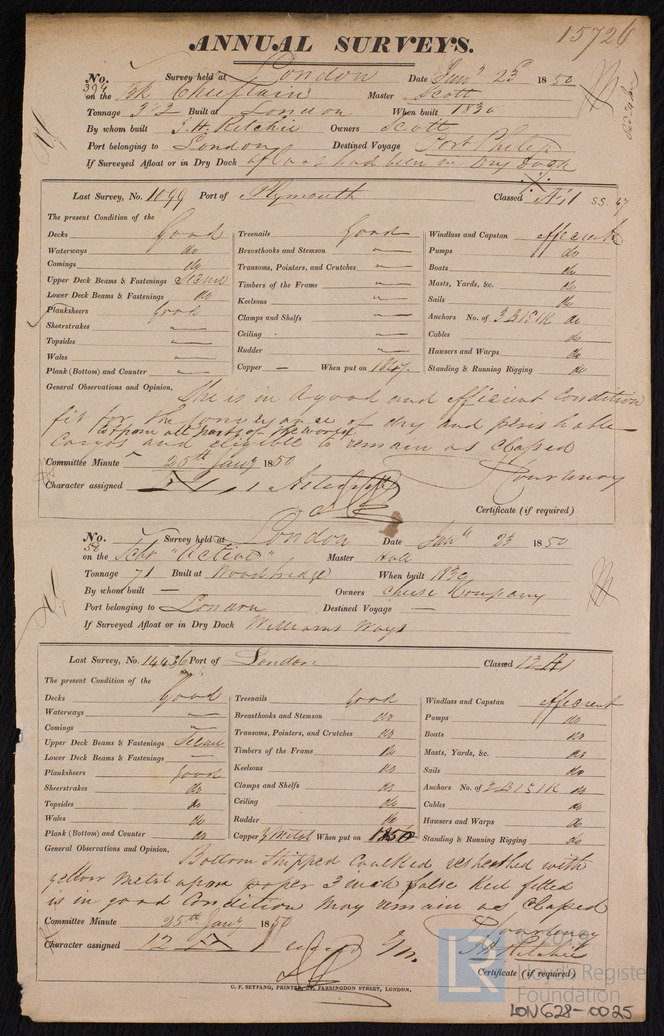 15726
ANNUAL SURVEYS.
No. 394 Survey held at London Date Jany 23d 1850
on the Bk Chieftain Master Scott
Tonnage 3 Built at London When built 1830
By whom built J. H. Ritchie Owners Scott
Port belonging to London Destined Voyage Port Philip
If Surveyed Afloat or in Dry Dock afloat had been in Dry Dock
Last Survey, No. 1099 Port of Plymouth Classed A1 SS. 47
The present Condition of the
Decks Good Treenails Good Windlass and Capstan efficient
Waterways do Breasthooks and Stemson — Pumps do
Comings do Transoms, Pointers, and Crutches — Boats do
Upper Deck Beams & Fastenings Timbers of the Frame — Masts, Yards, &c. do
Lower Deck Beams & Fastenings do Keelsons — Sails do
Planksheers Good Clamps and Shelfs — Anchors No. of 3 B 1 S 1 K do
Sheerstrakes — Ceiling — Cables do
Topsides — Rudder — Hawsers and Warps do
Wales — Copper — When put on 1847 Standing & Running Rigging do
Plank (Bottom) and Counter —
General Observations and Opinion, She is in a good and efficient Condition
fit for the conveyance of dry and perishable
to & from all parts of the world
Cargos and eligible to remain as Classed
Committee Minute 25th Jany 1850 Courtenay
Character assigned
Certificate (if required)
No. 50 Survey held at London Date Jany 23 1850
on the Schr "Active" Master Hall
Tonnage 71 Built at Woodbridge When built 1830
By whom built — Owners Cheese Company
Port belonging to London Destined Voyage —
If Surveyed Afloat or in Dry Dock Williams Ways
Last Survey, No. 14436 Port of London Classed 12 A1
The present Condition of the
Decks Good Treenails Good Windlass and Capstan efficient
Waterways — Breasthooks and Stemson do Pumps do
Comings — Transoms, Pointers, and Crutches do Boats do
Upper Deck Beams & Fastenings Timbers of the Frame do Masts, Yards, &c. do
Lower Deck Beams & Fastenings — Keelsons do Sails do
Planksheers Good Clamps and Shelfs do Anchors No. of 2 B 1 S 1 K do
Sheerstrakes do Ceiling do Cables do
Topsides do Rudder do Hawsers and Warps do
Wales do Copper Y Metal When put on 1850 Standing & Running Rigging do
Plank (Bottom) and Counter do
General Observations and Opinion, Bottom Stripped Caulked resheathed with
yellow metal upon paper 3 inch false Keel fitted
is in good Condition may remain as Classed
Committee Minute 25th Jany 1850 Courtenay
Character assigned 12 A 1 J. H. Ritchie
Certificate (if required)
C. F. SEYFANG, PRINTER, 57, FARRINGDON STREET, LONDON.
© 2019
LR
Lloyd's Register
Foundation
LON628-0025